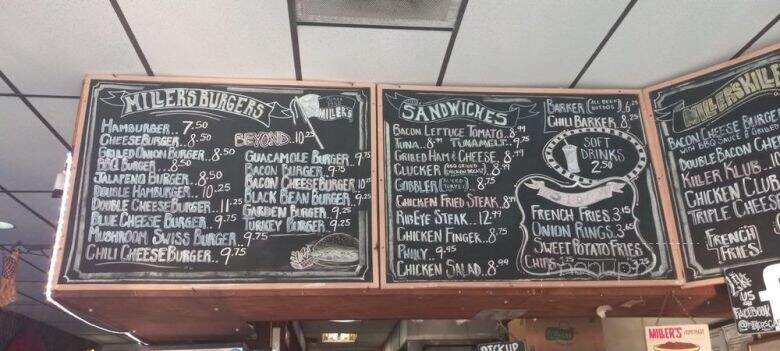 MILLER'S BURGERS
MILLER'S
HAMBURGER.. 7.50
CHEESEBURGER.. 8.50
GRILLED ONION BURGER.. 8.50
BBQ BURGER.. 8.50
JALAPENO BURGER. 8.50
DOUBLE HAMBURGER.. 10.25
DOUBLE CHEESE BURGER.. 11.25
BLUE CHEESE BURGER.. 9.75
MUSHROOM SWISS BURGER.. 9.75
CHILI CHEESE BURGER. 9.75
BEYOND.. 10.25
GUACAMOLE BURGER.. 9.75
BACON BURGER.. 9.75
BACON CHEESE BURGER
BLACK BEAN BURGER.. 9.25
GARDEN BURGER.. 9.25
TURKEY BURGER.. 9.25
SANDWICHES
BACON LETTUCE TOMATO.. 8.99
TUNA.. 8.99 TUNA MELT.. 9.75
GRILLED HAM & CHEESE.. 8.99
CLUCKER
GOBBLER 8.75
CHICKEN FRIED STEAK.. 8.99
RIBEYE STEAK.. 12.99
CHICKEN FINGER.. 8.75
PHILLY.. 9.95
CHICKEN SALAD.. 8.99
BARKER (ALL BEEF HOT DOG) 6.25
CHILI BARKER.. 8.25
SOFT
DRINKS
2.50
FRENCH FRIES. 3.15
ONION RINGS. 3.65
SWEET POTATO FRIES
CHIPS
MILLERS KILLER
BACON CHEESE BURGER
WITH BBQ SAUCE &
DOUBLE BACON
KILLER KLUB
CHICKEN CLUB
TRIPLE CHEESE
FRENCH
FRIES
LIKE
US
ON
FACEBOOK
PICKUP
MILLER'S HOMEMADE